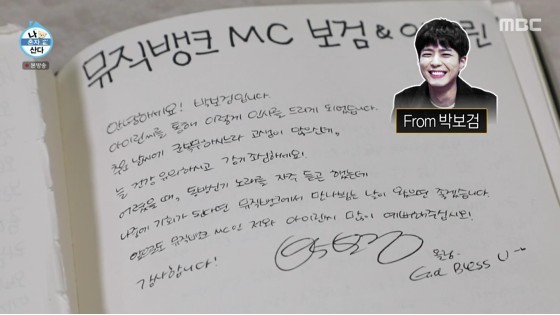 나 혼자 산다
본방송
MBC
뮤직뱅크 MC 보검 & 아이린
From 박보검
안녕하세요! 박보검입니다.
아이린씨를 통해 이렇게 인사를 드리게 되었습니다.
추운 날씨에 군복무하시느라 고생이 많으신데,
늘 건강 유의하시고 감기조심하세요!
어렸을 때, 동방신기 노래를 자주 듣곤 했는데
나중에 기회가 된다면 뮤직뱅크에서 만나뵙는 날이 왔으면 좋겠습니다.
앞으로도 뮤직뱅크 MC인 저와 아이린씨 많이 예뻐해주십시오!
감사합니다!
God Bless U